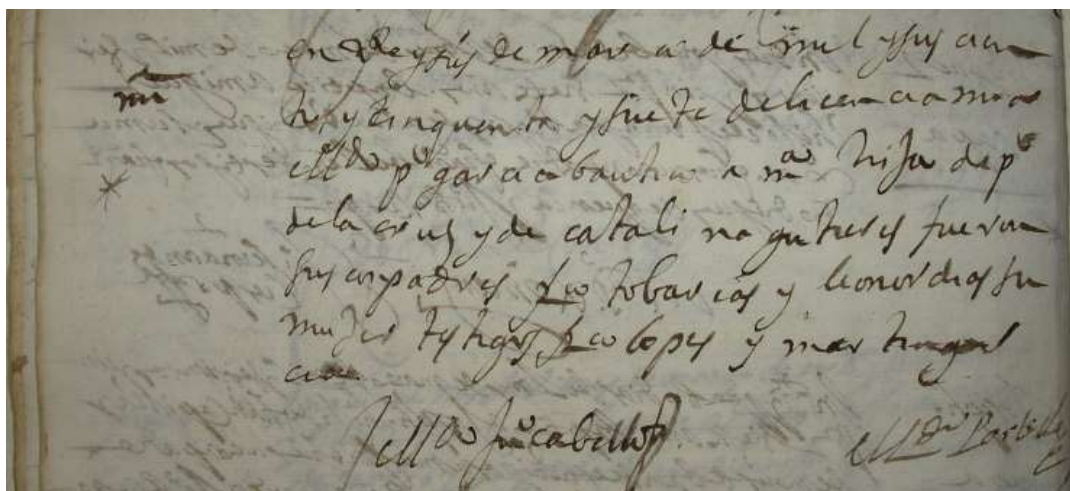 mª
en veynte y seys de março de mil y seys cien
tos y cinquenta y siete de licencia mia
el ldo pº garcia bautizo a mª hija de pº
de la cruz y de catali na gutieres fueron
sus conpadres frco tobar ias y leonor dias su
muger testigos frco lopes y martin gar
cia
el ldo juº cabello
el ldo